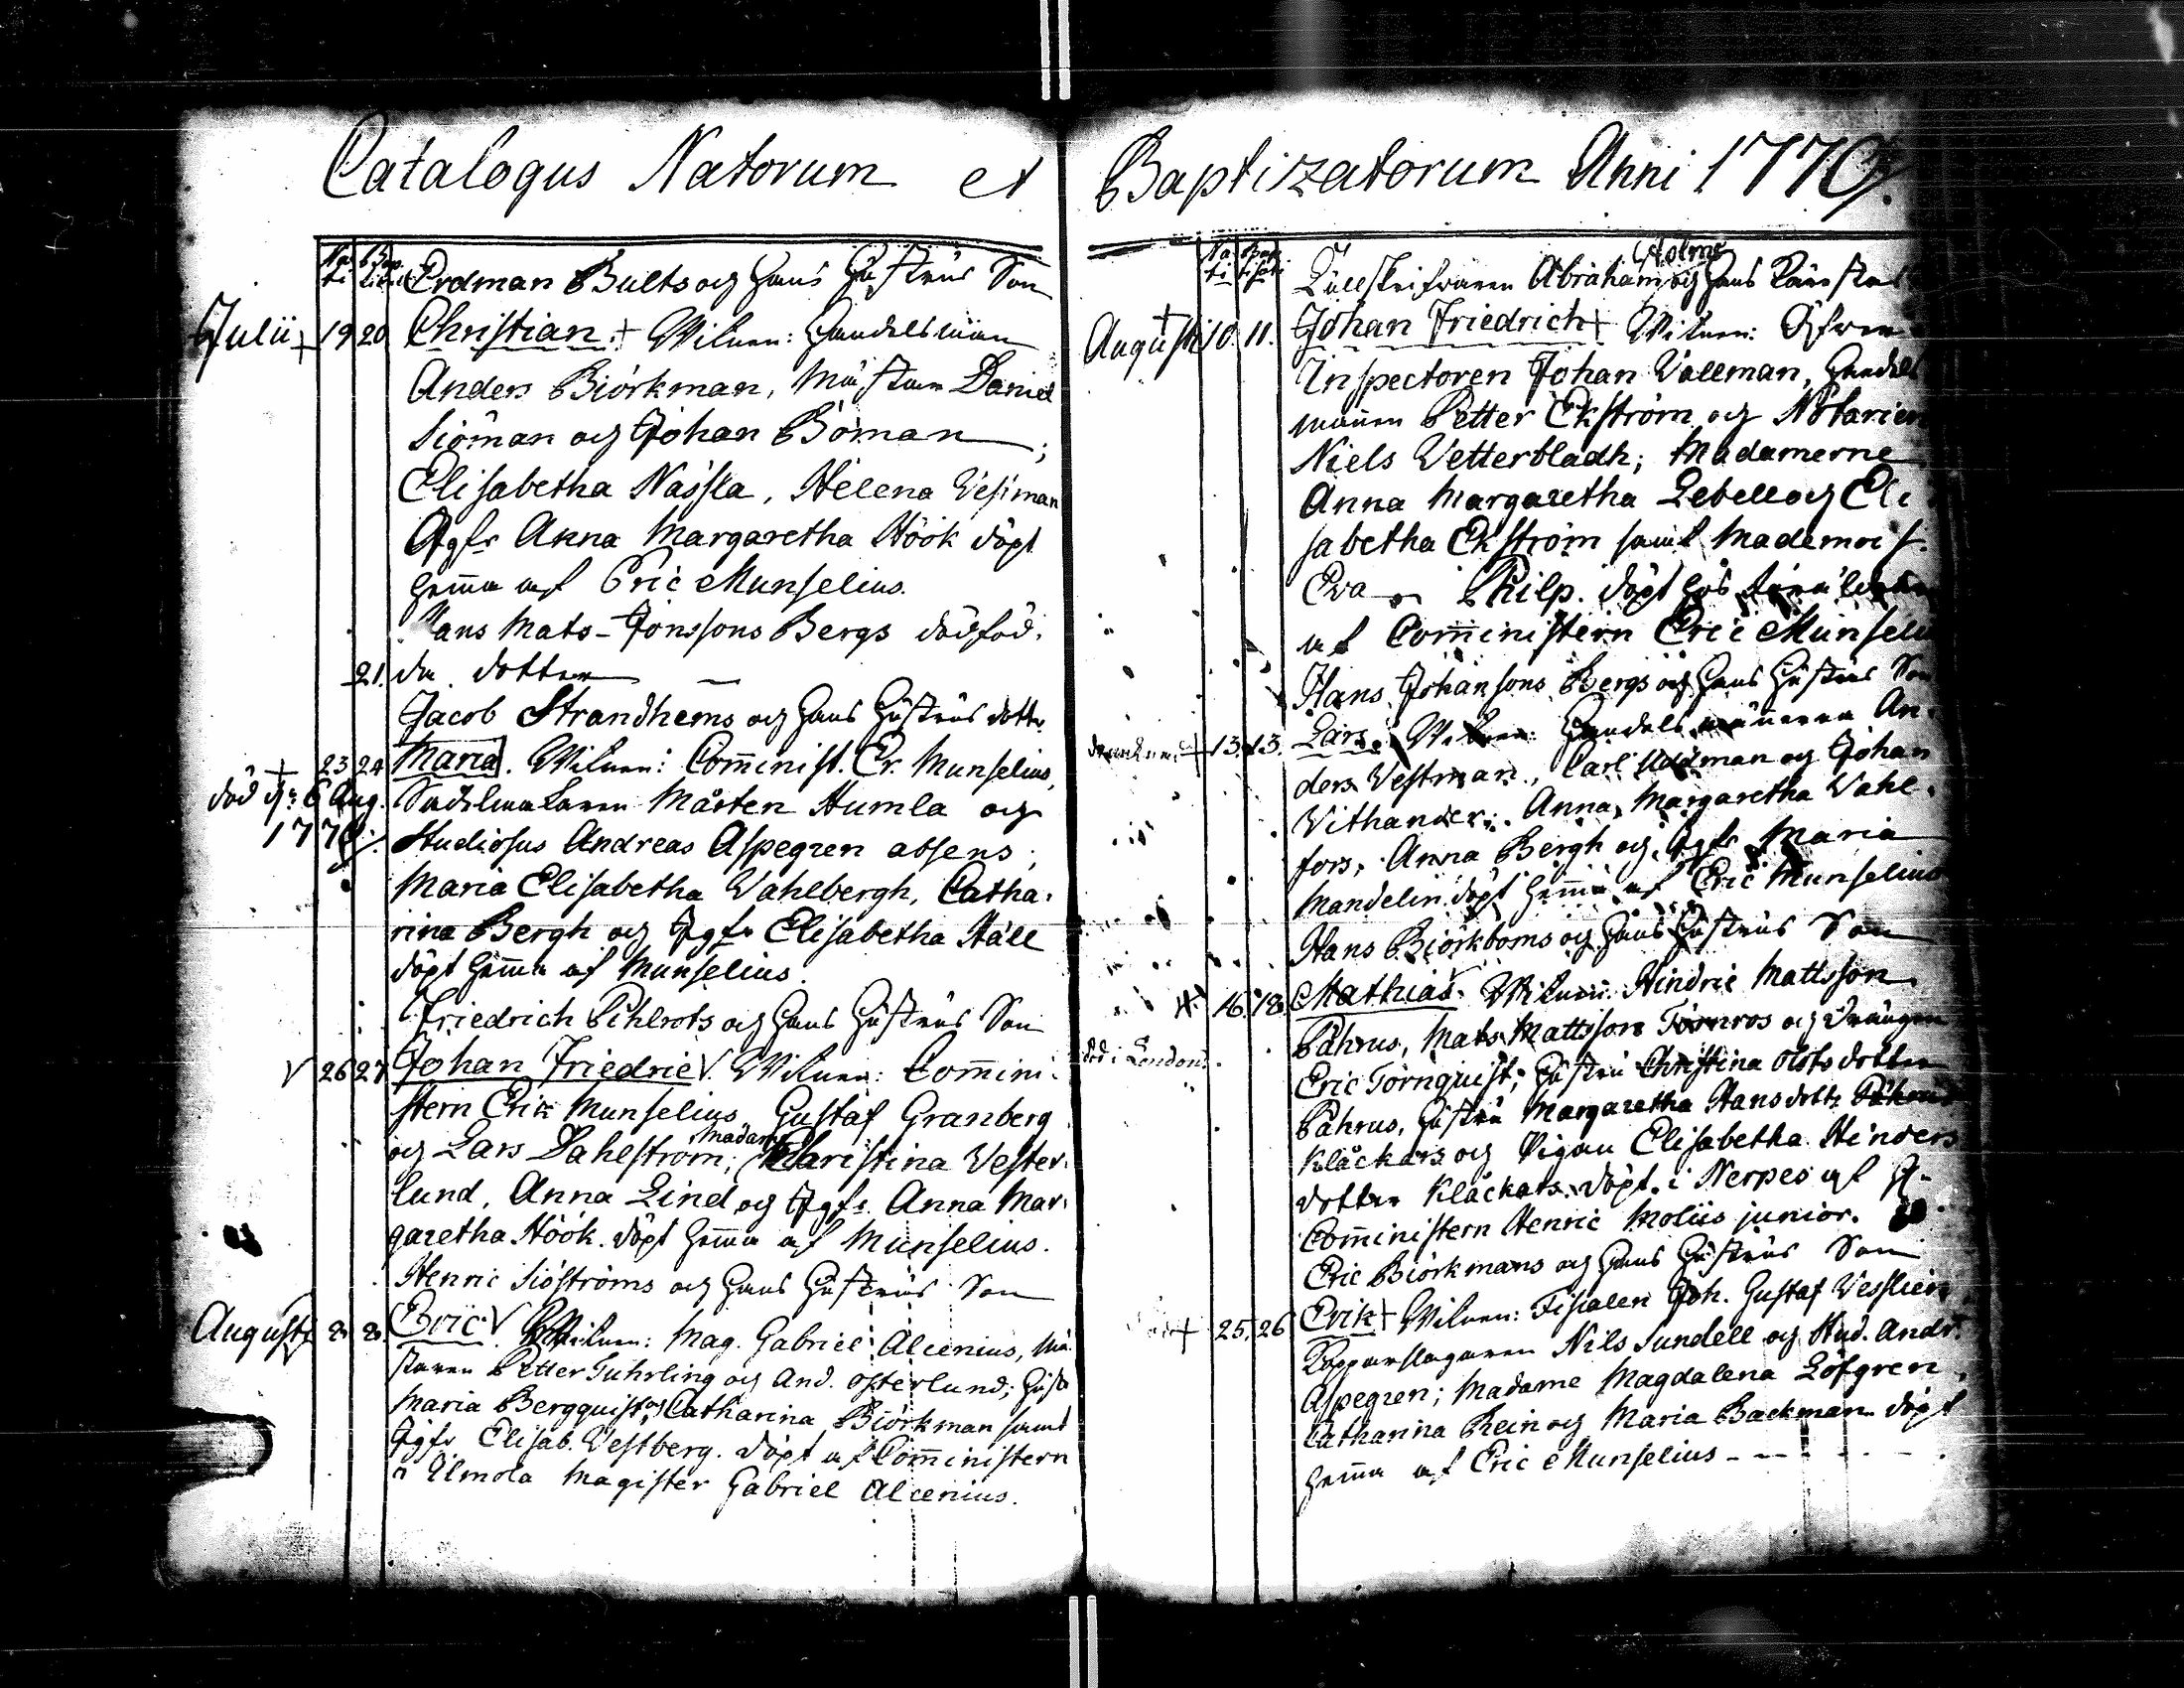 Catalogus Natorum et
Na ti Bap tizati Erdman Bults och hans Hustrus Son
Julii + 19 20 Christian. + Witnen: Handelsman
Anders Biörkman, Mästarn Daniel
Siöman och Johan Böman;
Elisabetha Nässla, Helena Vesman
Jgfr Anna Margaretha Höök döpt
hemma af Eric Munselius.
Hans Mats-Jonssons Bergs dödföd-
21. da dotter
Jacob Strandhems och hans Hustrus dotter
+ 23 24 Maria. Witnen: Comminist. Er. Munselius,
död d: 6 Aug. Mårten Humla och
1770. Studiosus Andreas Aspegren absens;
Maria Elisabetha Wahlbergh, Catha-
rina Bergh och Jgfr Elisabetha Häll
döpt hemma af Munselius.
Friedrich Pihlrots och hans Hustrus Son
V 26 27 Johan Friedric V. Witnen: Commini-
stern Erik Munselius, Gustaf Granberg
och Lars Dahlström; Madam Christina Vester-
lund, Anna Lind och Jgfr. Anna Mar-
garetha Höök. döpt hemma af Munselius.
Henric Siöströms och hans Hustrus Son
Augusti 2. 2. Eric V. Witnen: Mag. Gabriel Alcenius, Mä-
staren Petter Tuhrling och And. Österlund; Hustr
Maria Bergquist, och Catharina Biörkman samt
Jgfr Elisab. Vestberg. döpt af Comministern
i Ilmola Magister Gabriel Alcenius.
Baptizatorum Anni 1770.
Na ti Bap tisati Tullskrifvaren Abraham Holms och hans Käresta
Augusti + 10. 11. Johan Friedrich + Witnen: Öfver-
Inspectoren Johan Vallman, Handels
mannen Petter Ekström och Notarien
Niels Vetterbladh; Madamerne
Anna Margaretha Lebell och Eli
sabetha Ekström samt Mademois.
Eva Philp. döpt hos
af Comministern Eric Munseli
Hans Johansons Bergs och hans Hustrus Son
+ 13. 13. Lars. Witnen: Handelsmännerna An-
ders Vestman, Carl Uddman och Johan
Vithander. Anna Margaretha Vahl-
fors, Anna Bergh och Jgfr Maria
Mandelin. döpt hemma af Eric Munselius
Hans Biörkboms och hans Hustrus Son
+ 16. 18. Mathias. Witnen: Hindric Mattsson
död i London. Påhrus, Mats Mattsson Törnros och Drängen
Eric Törnquist; Hustru Christina Olofsdotter
Påhrus, Hustru Margaretha Hansdotter
Klåckars och Pigan Elisabetha Hinders
dotter Klåckars. döpt i Nerpes af
Comministern Henric Moliis junior.
Eric Biörkmans och hans Hustrus Son
+ 25. 26 Erik + Witnen: Fiscalen Joh. Gustaf Vesslien
Kopparslagaren Nils Sundell och Stud. Andr.
Aspegren; Madame Magdalena Löfgren,
Catharina Rein och Maria Backman döpt
hemma af Eric Munselius